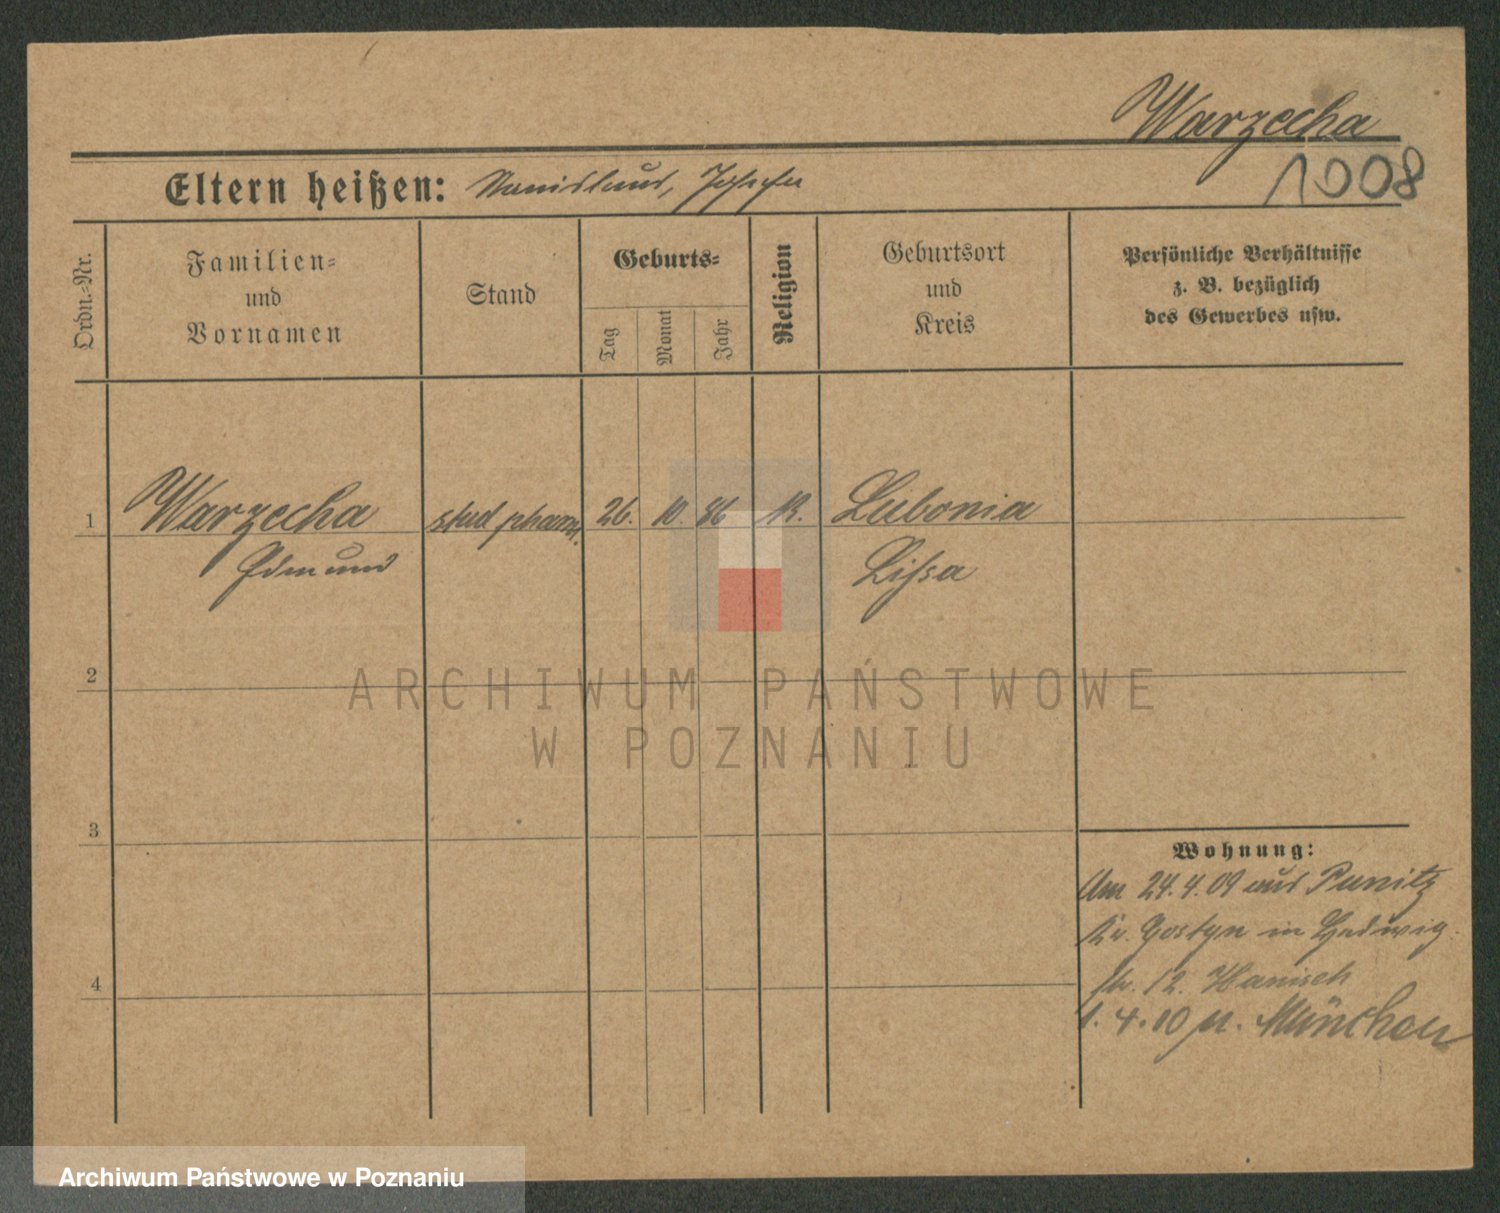 Warzecha
1008
Eltern heißen: Stanislaus, Josefa
Ordn.-Nr.
Familien-
und
Vornamen
Stand
Geburts-
Tag
Monat
Jahr
Religion
Geburtsort
und
Kreis
Persönliche Verhältnisse
z. B. bezüglich
des Gewerbes usw.
1 Warzecha stud pharm. 26. 10. 86 K. Lubonia
Edmund Lissa
2
ARCHIWUM PAŃSTWOWE
W POZNANIU
3
Wohnung:
Am 24.4.09 aus Punitz
Kr. Gostyn in Hedwig
4
str. 12. Hanisch
1.4.10 n. München
Archiwum Państwowe w Poznaniu